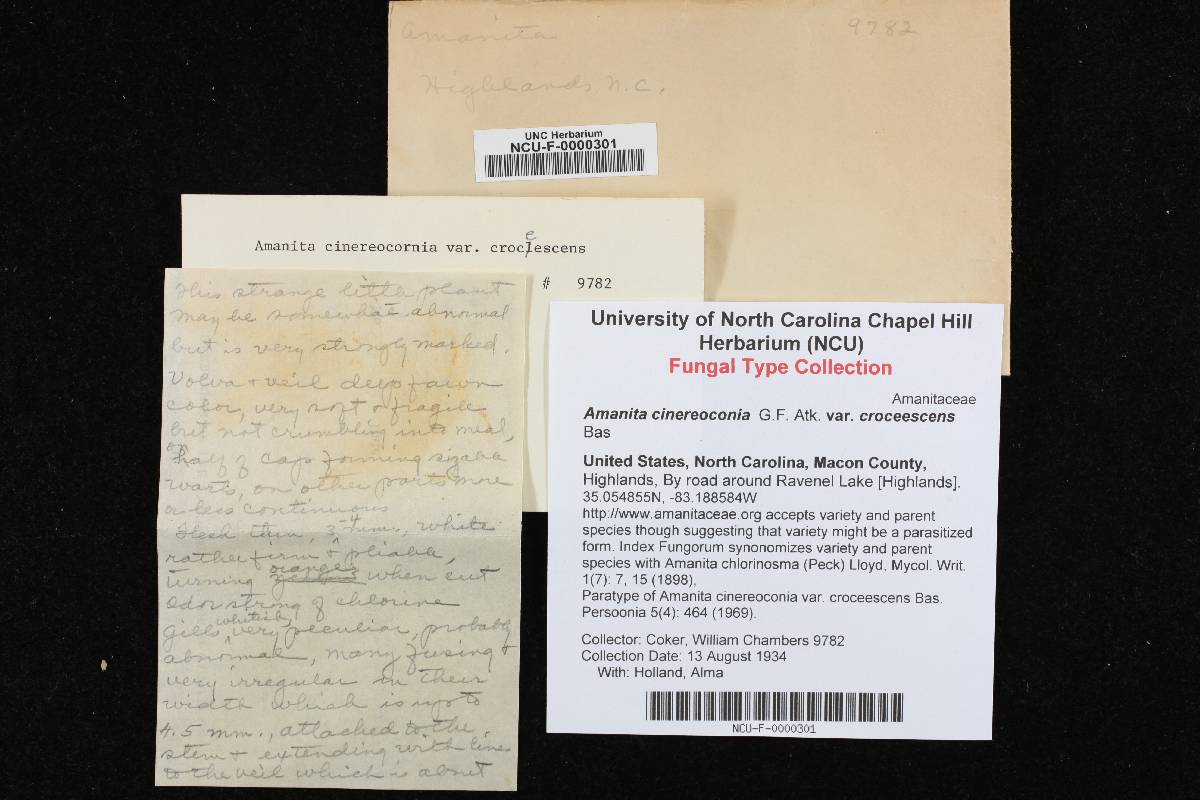 Amanita 9782
Highlands, N.C.
UNC Herbarium
NCU-F-0000301
Amanita cinereocornia var. croceescens
# 9782
This strange little plant
may be somewhat abnormal
but is very strongly marked.
Volva + veil deep fawn
color, very soft & fragile
but not crumbling into meal,
on half of cap forming sizable
warts, on other parts more
or less continuous
Flesh thin, 3-4 mm., white
rather firm & pliable,
turning orange when cut
Odor strong of chlorine
gills whitish, very peculiar, probably
abnormal, many fusing +
very irregular in their
width which is up to
4.5 mm., attached to the
stem + extending with lines
to the veil which is about
University of North Carolina Chapel Hill
Herbarium (NCU)
Fungal Type Collection
Amanitaceae
Amanita cinereoconia G.F. Atk. var. croceescens
Bas
United States, North Carolina, Macon County,
Highlands, By road around Ravenel Lake [Highlands].
35.054855N, -83.188584W
http://www.amanitaceae.org accepts variety and parent
species though suggesting that variety might be a parasitized
form. Index Fungorum synonomizes variety and parent
species with Amanita chlorinosma (Peck) Lloyd, Mycol. Writ.
1(7): 7, 15 (1898),
Paratype of Amanita cinereoconia var. croceescens Bas.
Persoonia 5(4): 464 (1969).
Collector: Coker, William Chambers 9782
Collection Date: 13 August 1934
With: Holland, Alma
NCU-F-0000301